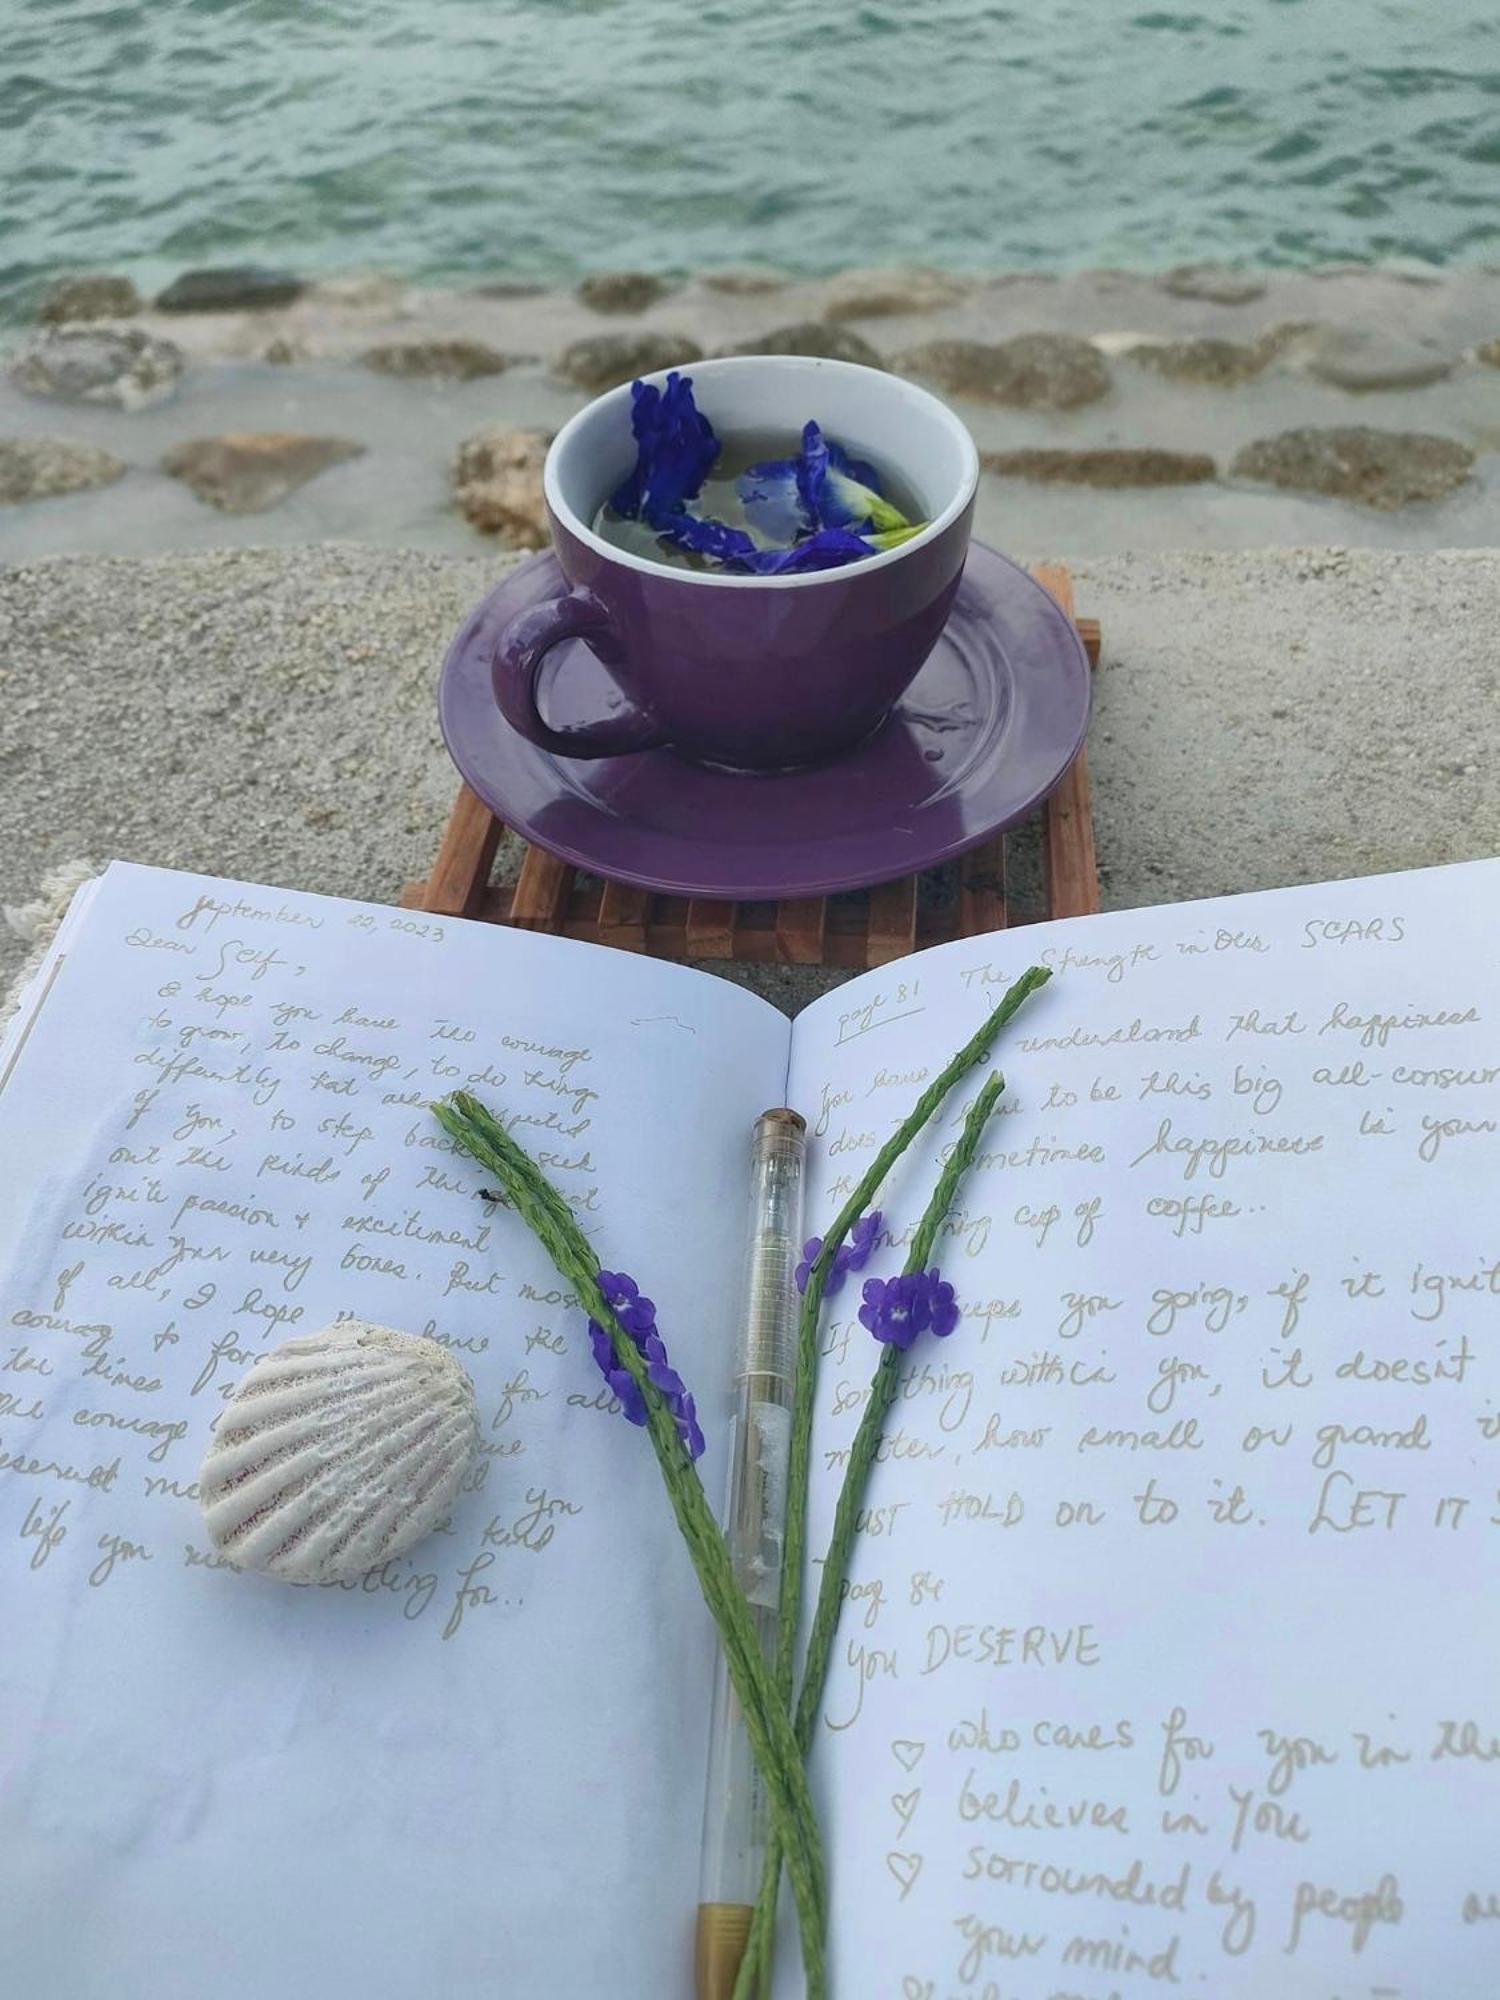 September 22, 2023
Dear Self,
I hope you have the courage
to grow, to change, to do things
differently that are expected
of you, to step back seek
out the kinds of the
ignite passion + excitement
within your very bones. But most
of all, I hope have the
courag to for
the times for all
the courage
deservet me you
life you kind
settling for..
The Strength in Our SCARS
page 81
You have to understand that happiness
does have to be this big all-consum
Sometimes happiness is your
morning cup of coffee..
If you going, if it ignit
Something within you, it doesn't
matter, how small or grand
JUST HOLD on to it. LET IT
page 84
You DESERVE
♡ who cares for you in the
♡ believes in You
♡ sorrounded by people
your mind.